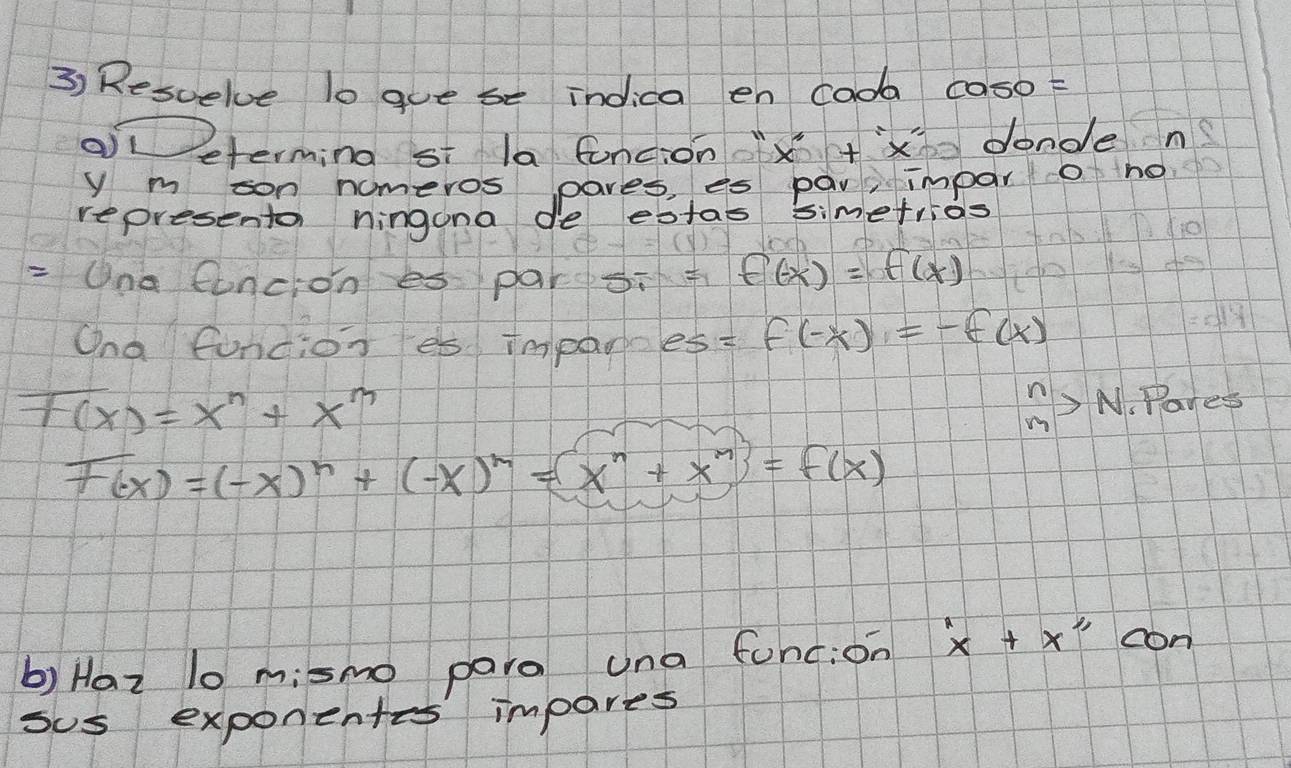 3) Resuelve lo que se indica en cada caso =
a) Determina si la función "x" + "x" donde n
y m son números pares, es par, impar o no
representa ninguna de estas simetrías
= Una función es par si = f(-x) = f(x)
Una función es impar es = f(-x) = -f(x)
F(x) = xⁿ + xᵐ
n
m > N. Pares
F(-x) = (-x)ⁿ + (-x)ᵐ = (xⁿ + xᵐ) = f(x)
b) Haz lo mismo para una función "x + x" con
sus exponentes impares